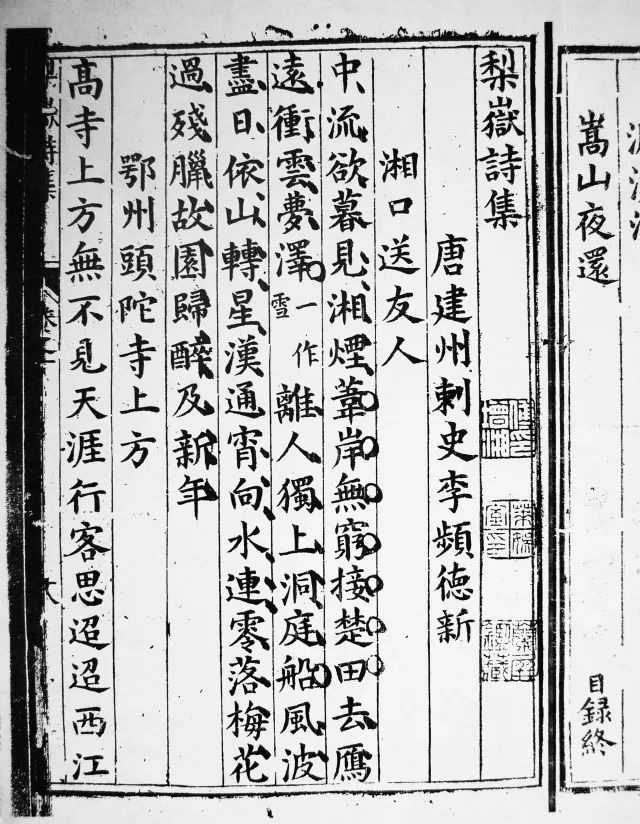 嵩山夜還
目録終
梨嶽詩集
唐建州刺史李頻徳新
湘口送友人
中流欲暮見湘煙葦岸無窮接楚田去鴈
遠衝雲夢澤一作雪離人獨上洞庭船風波
盡日依山轉星漢通宵向水連零落梅花
過殘臘故園歸醉及新年
鄂州頭陀寺上方
高寺上方無不見天涯行客思迢迢西江